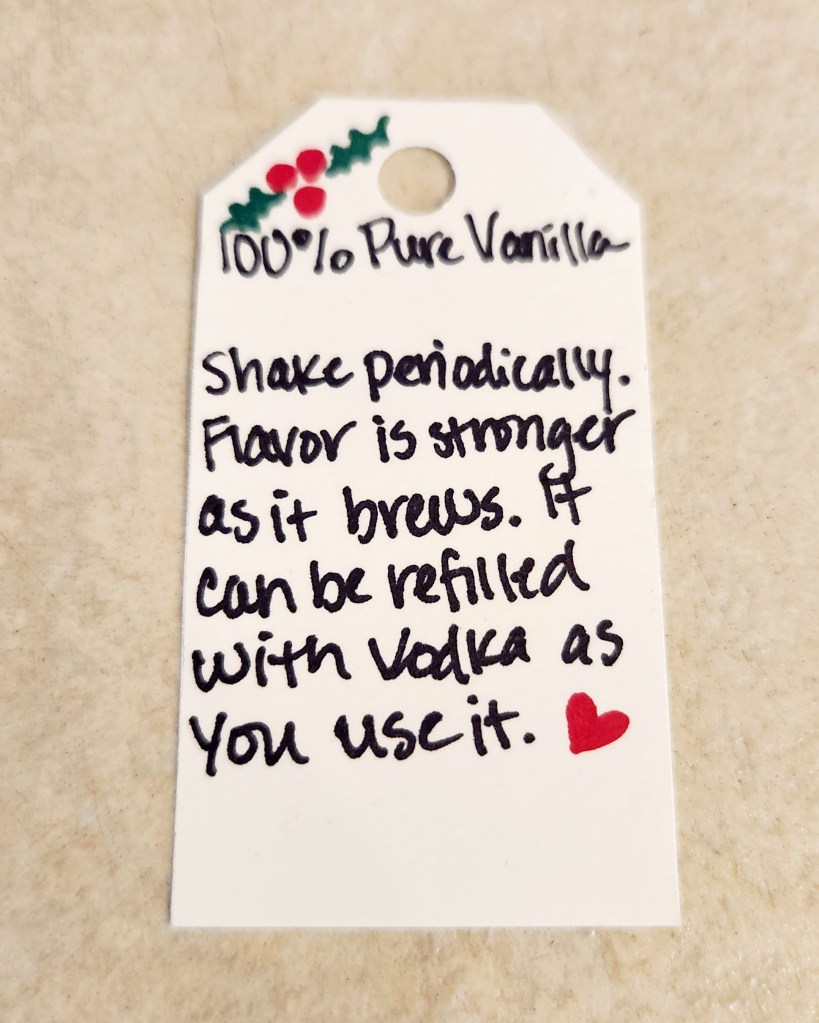 100% Pure Vanilla
Shake periodically.
Flavor is stronger
as it brews. It
can be refilled
with Vodka as
you use it.